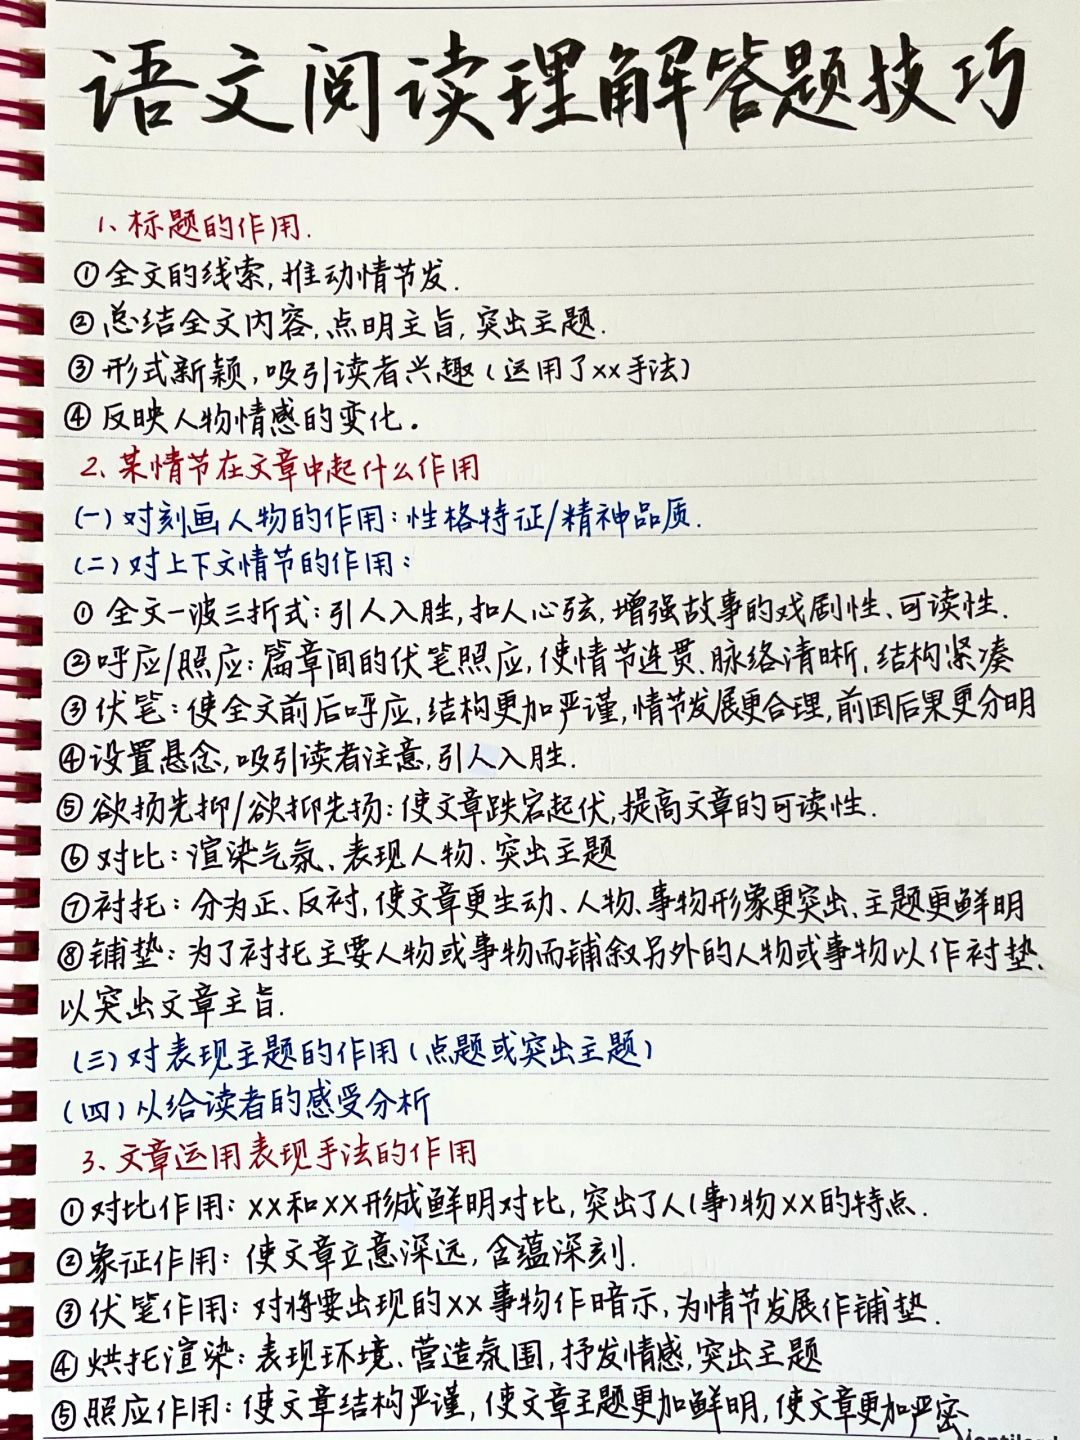 语文阅读理解答题技巧
1、标题的作用.
①全文的线索,推动情节发.
②总结全文内容,点明主旨,突出主题.
③形式新颖,吸引读者兴趣(运用了xx手法)
④反映人物情感的变化.
2、某情节在文章中起什么作用
(一)对刻画人物的作用:性格特征/精神品质.
(二)对上下文情节的作用:
①全文一波三折式:引人入胜,扣人心弦,增强故事的戏剧性、可读性.
②呼应/照应:篇章间的伏笔照应,使情节连贯、脉络清晰,结构紧凑
③伏笔:使全文前后呼应,结构更加严谨,情节发展更合理,前因后果更分明
④设置悬念,吸引读者注意,引人入胜.
⑤欲扬先抑/欲抑先扬:使文章跌宕起伏,提高文章的可读性.
⑥对比:渲染气氛、表现人物、突出主题
⑦衬托:分为正、反衬,使文章更生动、人物、事物形象更突出、主题更鲜明
⑧铺垫:为了衬托主要人物或事物而铺叙另外的人物或事物以作衬垫、
以突出文章主旨.
(三)对表现主题的作用(点题或突出主题)
(四)从给读者的感受分析
3、文章运用表现手法的作用
①对比作用:XX和XX形成鲜明对比,突出了人(事)物XX的特点.
②象征作用:使文章立意深远,含蕴深刻.
③伏笔作用:对将要出现的XX事物作暗示,为情节发展作铺垫.
④烘托渲染:表现环境、营造氛围,抒发情感,突出主题
⑤照应作用:使文章结构严谨,使文章主题更加鲜明,使文章更加严密